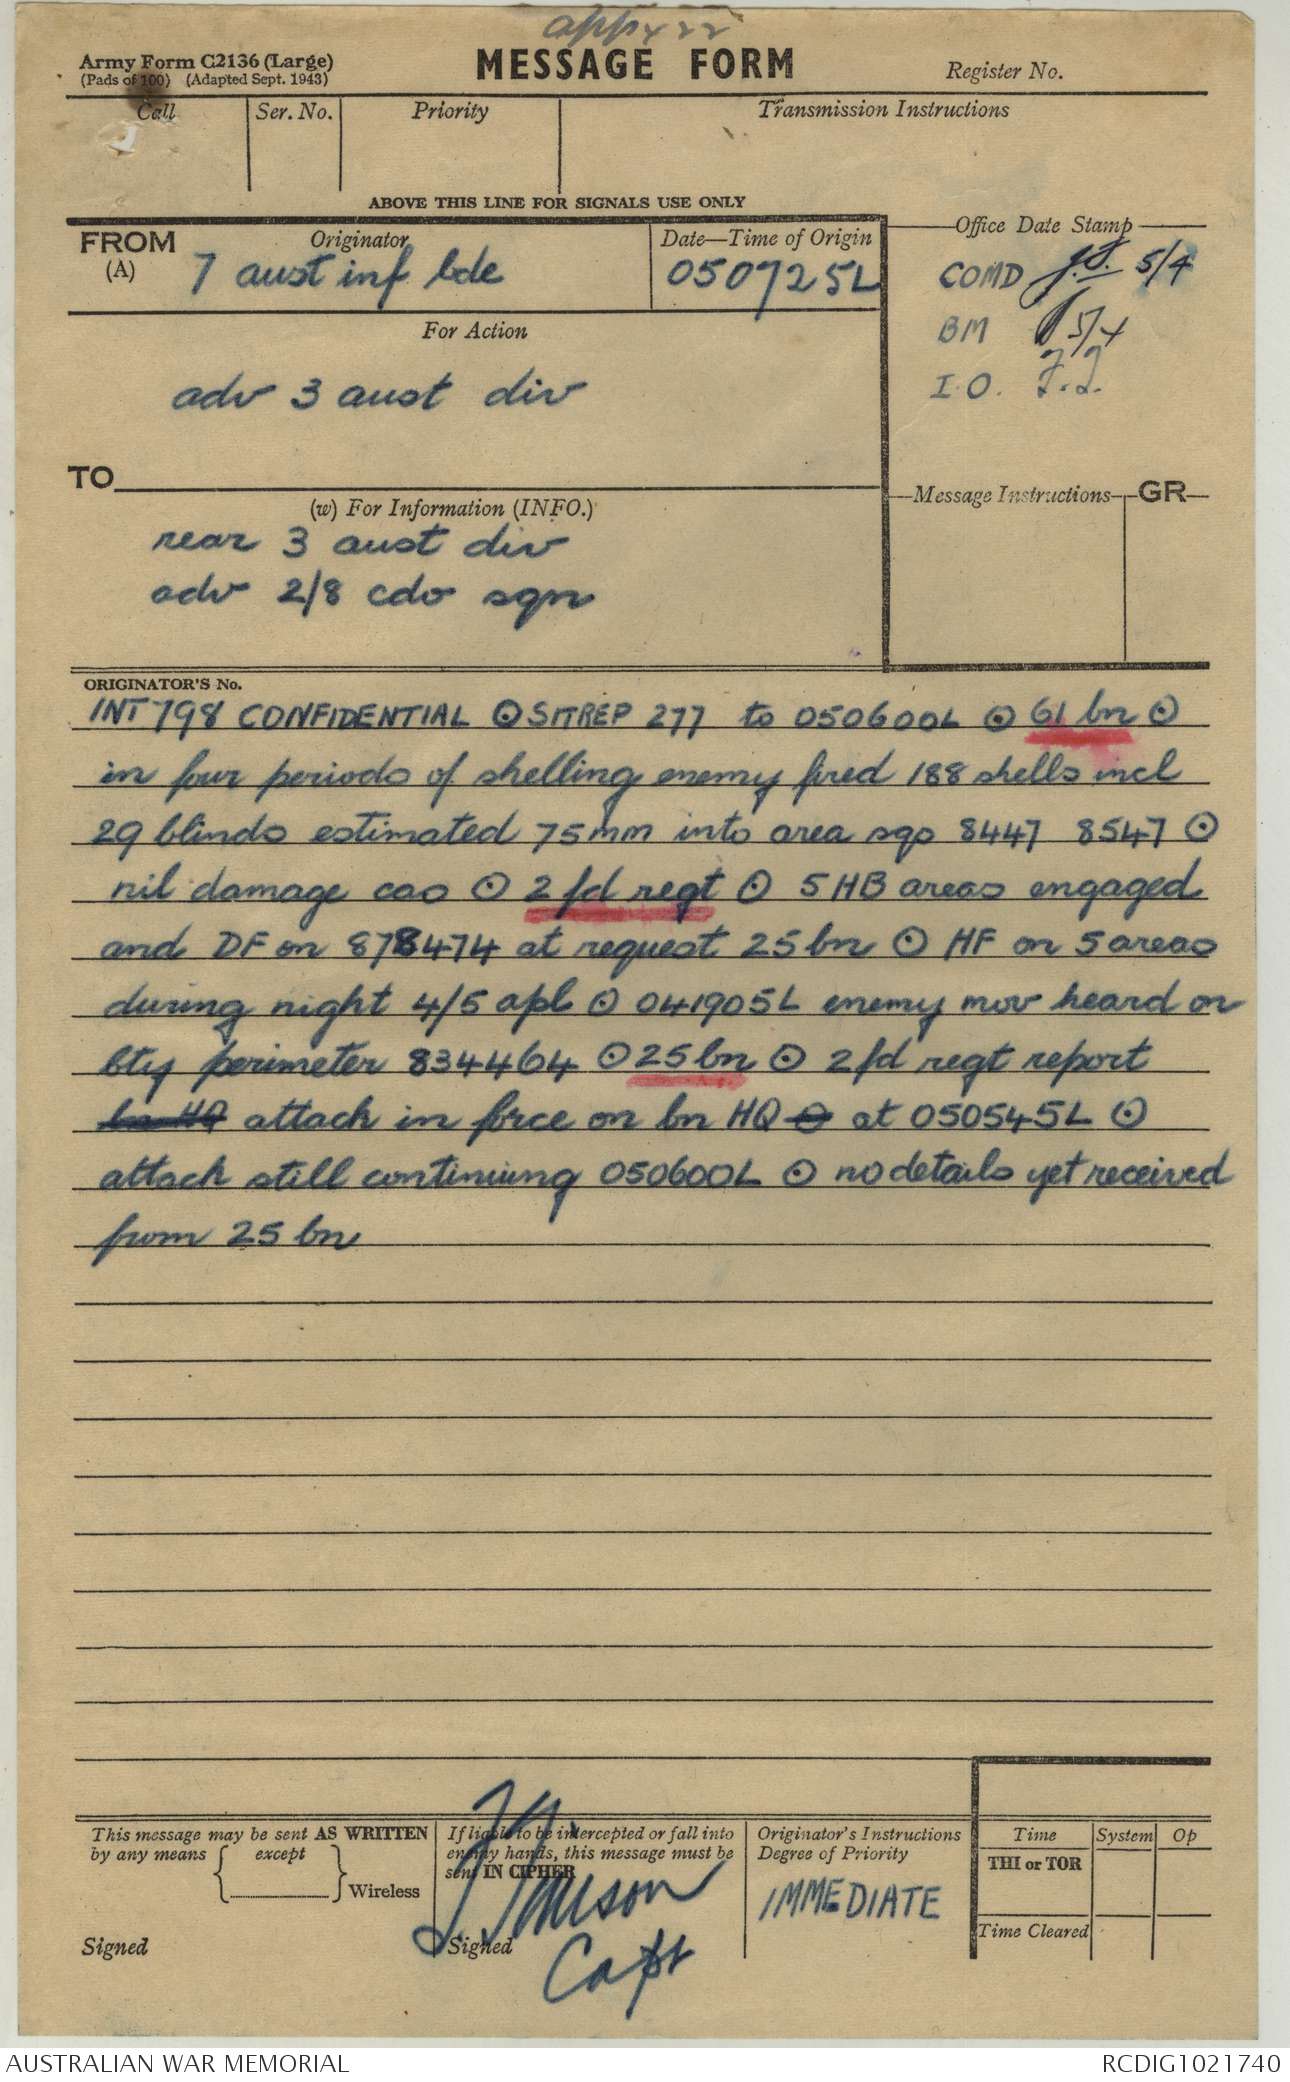 appx 22
Army Form C2136 (Large)
(Pads of 100) (Adapted Sept. 1943)
MESSAGE FORM
Register No.
Call
Ser. No.
Priority
Transmission Instructions
ABOVE THIS LINE FOR SIGNALS USE ONLY
FROM
(A)
Originator
7 aust inf bde
Date—Time of Origin
050725L
Office Date Stamp
COMD 5/4
BM 5/4
I.O.
For Action
adv 3 aust div
TO
(w) For Information (INFO.)
rear 3 aust div
adv 2/8 cdo sqn
Message Instructions
GR
ORIGINATOR'S No.
INT 798 CONFIDENTIAL ⊙ SITREP 277 to 050600L ⊙ 61 bn ⊙
in four periods of shelling enemy fired 188 shells incl
29 blinds estimated 75mm into area sqs 8447 8547 ⊙
nil damage cas ⊙ 2 fd regt ⊙ 5 HB areas engaged
and DF on 878474 at request 25 bn ⊙ HF on 5 areas
during night 4/5 apl ⊙ 041905L enemy mov heard on
bty perimeter 834464 ⊙ 25 bn ⊙ 2 fd regt report
bn HQ attach in force on bn HQ ⊙ at 050545L ⊙
attack still continuing 050600L ⊙ no details yet received
from 25 bn
This message may be sent AS WRITTEN
by any means { except } Wireless
Signed
If liable to be intercepted or fall into
enemy hands, this message must be
sent IN CIPHER
Signed
Capt
Originator's Instructions
Degree of Priority
IMMEDIATE
Time
System
Op
THI or TOR
Time Cleared
AUSTRALIAN WAR MEMORIAL
RCDIG1021740